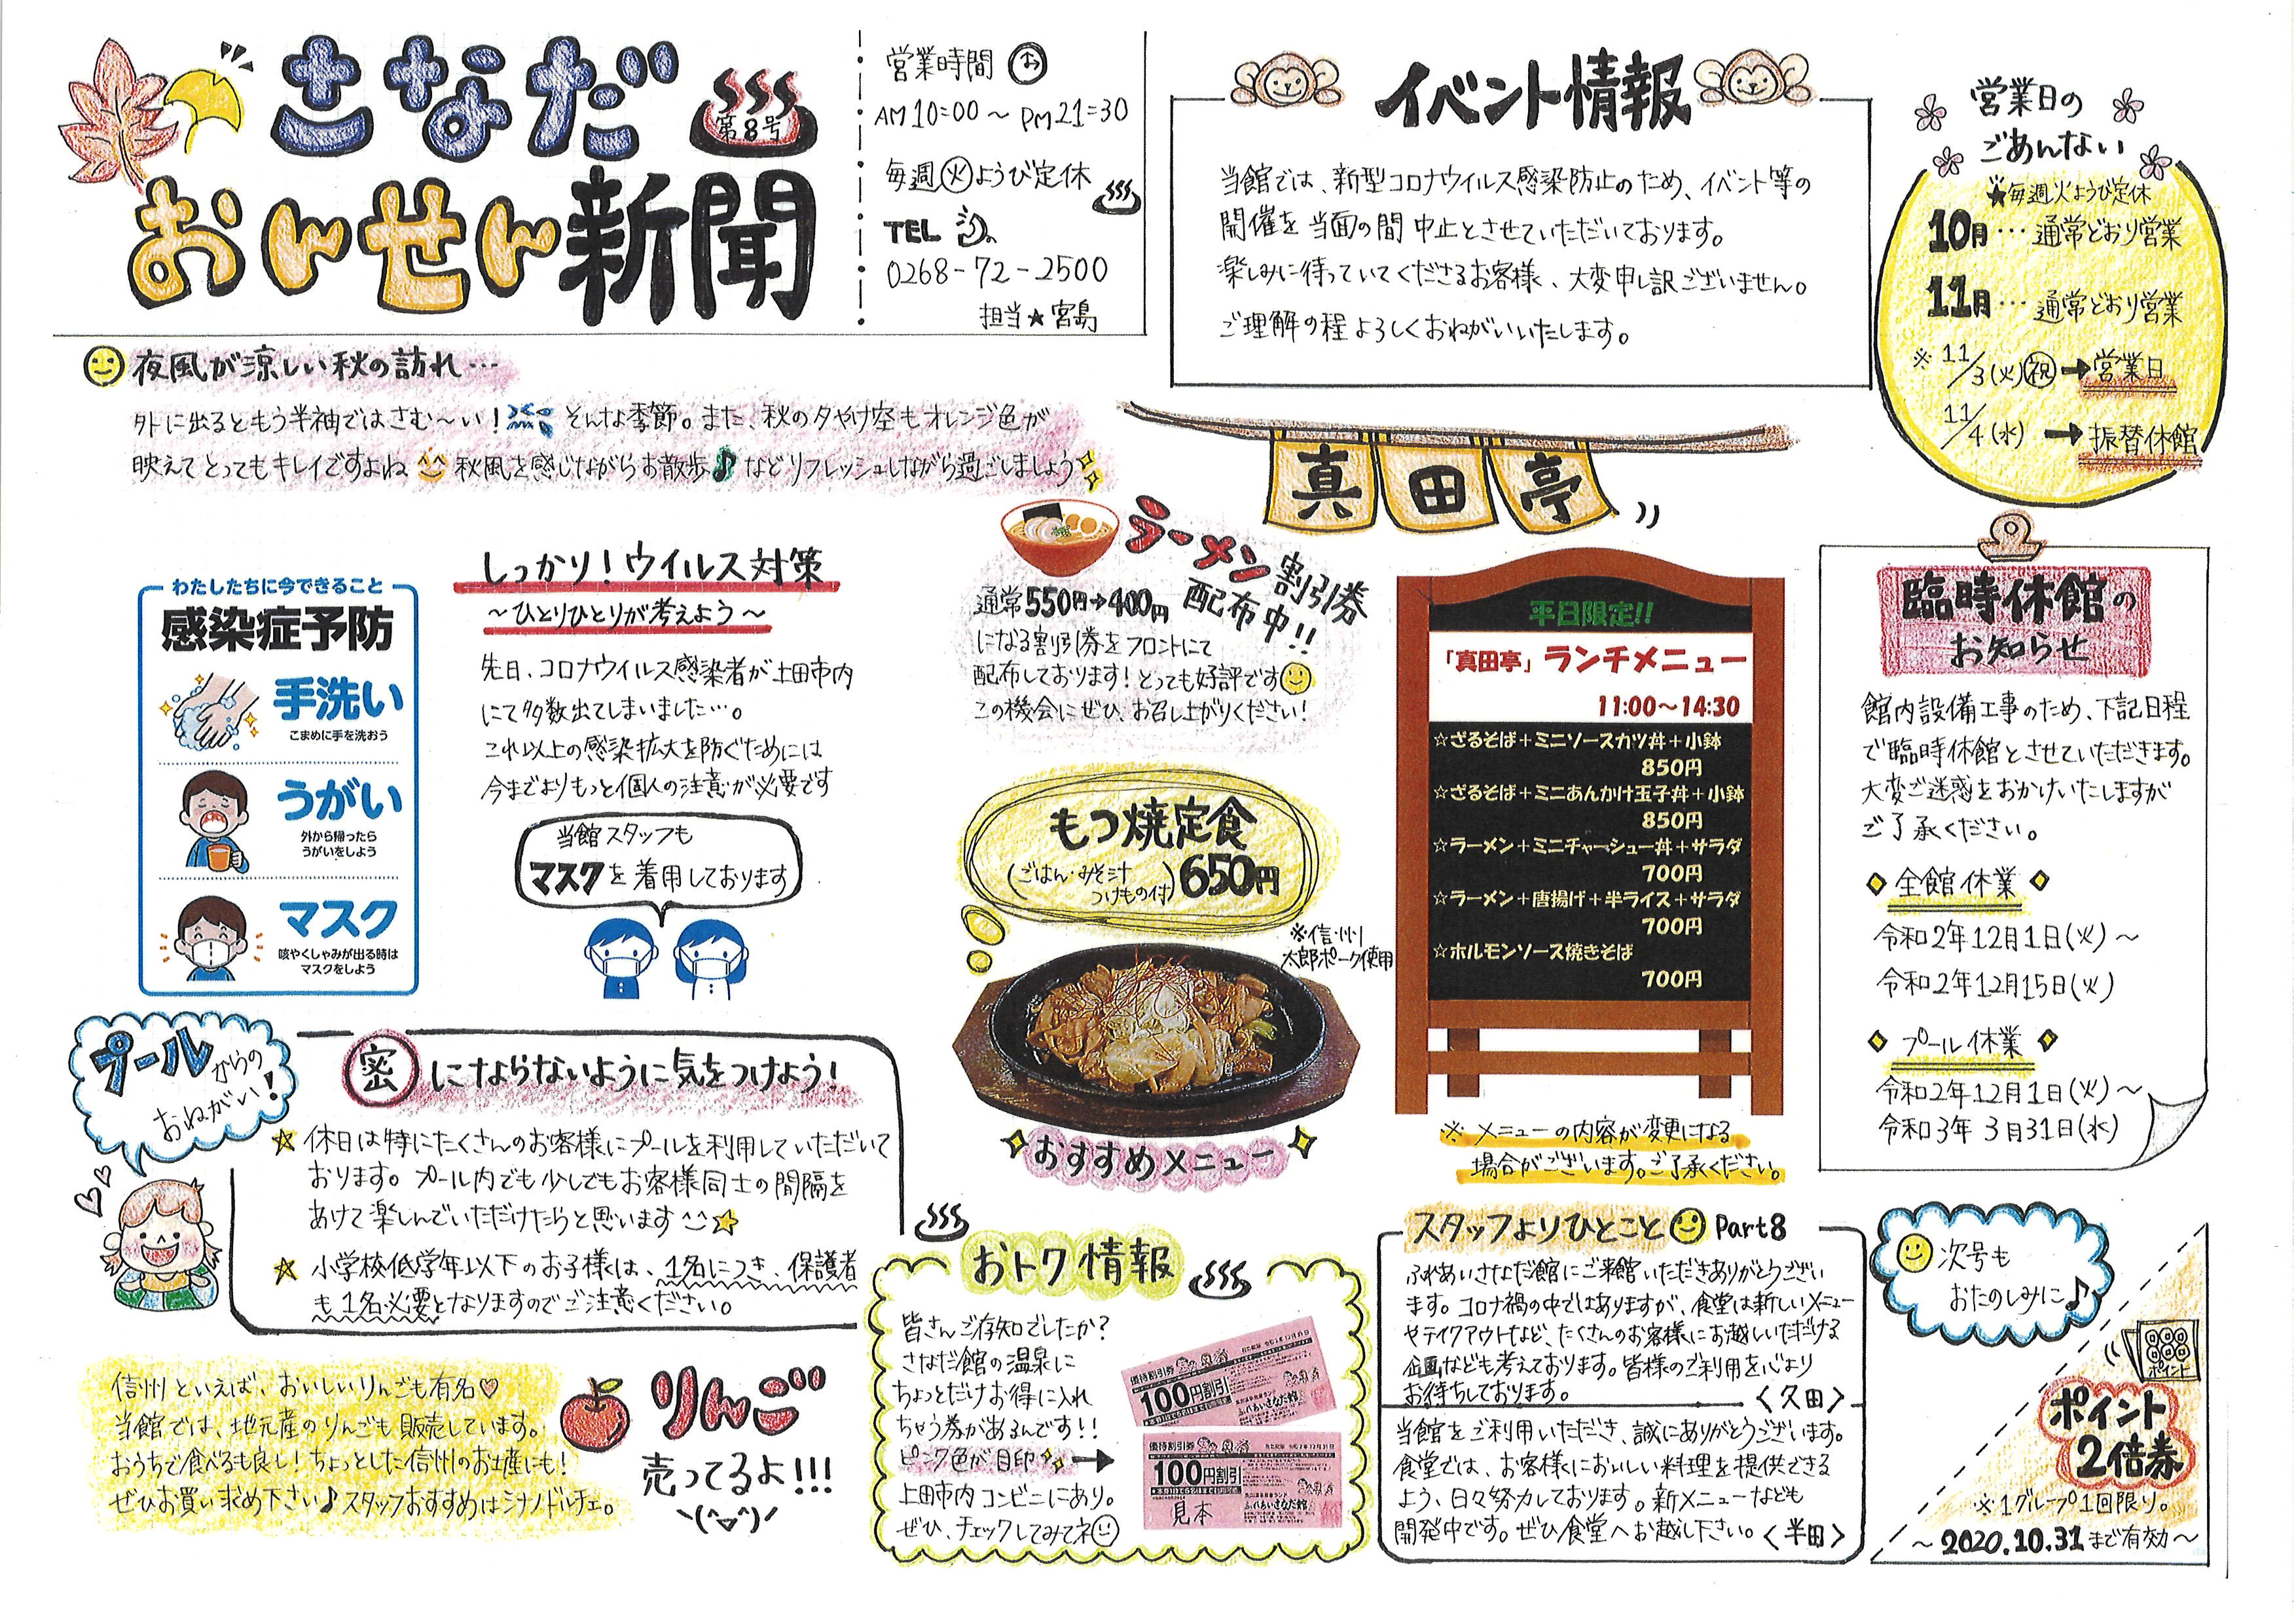 さなだ
第8号
おんせん新聞
営業時間 お
AM10:00～PM21:30
毎週火ようび定休
TEL
0268-72-2500
担当★宮島
イベント情報
当館では、新型コロナウイルス感染防止のため、イベント等の
開催を当面の間中止とさせていただいております。
楽しみに待っていてくださるお客様、大変申し訳ございません。
ご理解の程よろしくおねがいいたします。
営業日の
ごあんない
★毎週火ようび定休
10月…通常どおり営業
11月…通常どおり営業
※11/3(火)祝→営業日
11/4(水)→振替休館
夜風が涼しい秋の訪れ…
外に出るともう半袖ではさむ～い！そんな季節。また、秋の夕やけ空もオレンジ色が
映えてとってもキレイですよね 秋風を感じながらお散歩♪などリフレッシュしながら過ごしましょう
わたしたちに今できること
感染症予防
手洗い
こまめに手を洗おう
うがい
外から帰ったら
うがいをしよう
マスク
咳やくしゃみが出る時は
マスクをしよう
しっかり！ウイルス対策
～ひとりひとりが考えよう～
先日、コロナウイルス感染者が上田市内
にて多数出てしまいました…。
これ以上の感染拡大を防ぐためには
今までよりもっと個人の注意が必要です
当館スタッフも
マスクを着用しております
真田亭
ラーメン割引券
配布中!!
通常550円→400円
になる割引券をフロントにて
配布しております！とっても好評です
この機会にぜひ、お召し上がりください！
もつ焼定食
(ごはん・みそ汁
つけもの付)650円
※信州
太郎ポーク使用
おすすめメニュー
平日限定!!
「真田亭」ランチメニュー
11:00～14:30
☆ざるそば＋ミニソースカツ丼＋小鉢
850円
☆ざるそば＋ミニあんかけ玉子丼＋小鉢
850円
☆ラーメン＋ミニチャーシュー丼＋サラダ
700円
☆ラーメン＋唐揚げ＋半ライス＋サラダ
700円
☆ホルモンソース焼きそば
700円
※メニューの内容が変更になる
場合がございます。ご了承ください。
臨時休館の
お知らせ
館内設備工事のため、下記日程
で臨時休館とさせていただきます。
大変ご迷惑をおかけいたしますが
ご了承ください。
◇全館休業◇
令和2年12月1日(火)～
令和2年12月15日(火)
◇プール休業◇
令和2年12月1日(火)～
令和3年3月31日(水)
プールからの
おねがい！
密にならないように気をつけよう！
☆休日は特にたくさんのお客様にプールを利用していただいて
おります。プール内でも少しでもお客様同士の間隔を
あけて楽しんでいただけたらと思います^^☆
☆小学校低学年以下のお子様は、1名につき、保護者
も1名必要となりますのでご注意ください。
信州といえば、おいしいりんごも有名♡
当館では、地元産のりんごも販売しています。
おうちで食べるも良し！ちょっとした信州のお土産にも！
ぜひお買い求め下さい♪スタッフおすすめはシナノドルチェ。
りんご
売ってるよ!!!
おトク情報
皆さんご存知でしたか？
さなだ館の温泉に
ちょっとだけお得に入れ
ちゃう券があるんです!!
ピンク色が目印→
上田市内コンビニにあり。
ぜひ、チェックしてみてネ
優待割引券
100円割引
ふれあいさなだ館
優待割引券
100円割引
ふれあいさなだ館
見本
スタッフよりひとこと Part8
ふれあいさなだ館にご来館いただきありがとうござい
ます。コロナ禍の中ではありますが、食堂は新しいメニュー
やテイクアウトなど、たくさんのお客様にお越しいただける
企画なども考えております。皆様のご利用を心より
お待ちしております。
〈久田〉
当館をご利用いただき、誠にありがとうございます。
食堂では、お客様においしい料理を提供できる
よう、日々努力しております。新メニューなども
開発中です。ぜひ食堂へお越し下さい。〈半田〉
次号も
おたのしみに♪
ポイント
ポイント
2倍券
※1グループ1回限り。
～2020.10.31まで有効～